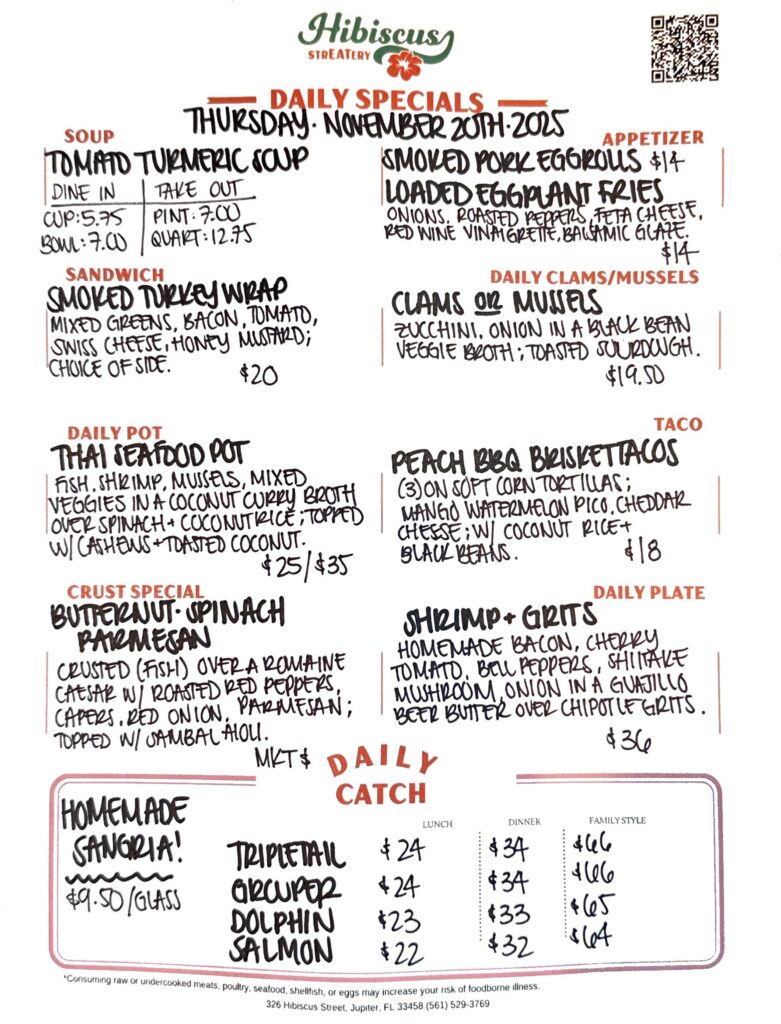 Hibiscus
STREATERY
DAILY SPECIALS
THURSDAY · NOVEMBER 20TH · 2025
SOUP
TOMATO TURMERIC SOUP
DINE IN | TAKE OUT
CUP: 5.75 | PINT: 7.00
BOWL: 7.00 | QUART: 12.75
APPETIZER
SMOKED PORK EGGROLLS $14
LOADED EGGPLANT FRIES
ONIONS, ROASTED PEPPERS, FETA CHEESE,
RED WINE VINAIGRETTE, BALSAMIC GLAZE.
$14
SANDWICH
SMOKED TURKEY WRAP
MIXED GREENS, BACON, TOMATO,
SWISS CHEESE, HONEY MUSTARD;
CHOICE OF SIDE.
$20
DAILY CLAMS/MUSSELS
CLAMS OR MUSSELS
ZUCCHINI, ONION IN A BLACK BEAN
VEGGIE BROTH; TOASTED SOURDOUGH.
$19.50
DAILY POT
THAI SEAFOOD POT
FISH, SHRIMP, MUSSELS, MIXED
VEGGIES IN A COCONUT CURRY BROTH
OVER SPINACH + COCONUT RICE; TOPPED
W/ CASHEWS + TOASTED COCONUT.
$25/$35
TACO
PEACH BBQ BRISKET TACOS
(3) ON SOFT CORN TORTILLAS;
MANGO WATERMELON PICO, CHEDDAR
CHEESE; W/ COCONUT RICE +
BLACK BEANS.
$18
CRUST SPECIAL
BUTTERNUT · SPINACH
PARMESAN
CRUSTED (FISH) OVER A ROMAINE
CAESAR W/ ROASTED RED PEPPERS,
CAPERS, RED ONION, PARMESAN;
TOPPED W/ SAMBAL AIOLI.
MKT $
DAILY PLATE
SHRIMP + GRITS
HOMEMADE BACON, CHERRY
TOMATO, BELL PEPPERS, SHIITAKE
MUSHROOM, ONION IN A GUAJILLO
BEER BUTTER OVER CHIPOTLE GRITS.
$36
DAILY
CATCH
HOMEMADE
SANGRIA!
$9.50/GLASS
LUNCH DINNER FAMILY STYLE
TRIPLETAIL $24 $34 $66
GROUPER $24 $34 $66
DOLPHIN $23 $33 $65
SALMON $22 $32 $64
*Consuming raw or undercooked meats, poultry, seafood, shellfish, or eggs may increase your risk of foodborne illness.
326 Hibiscus Street, Jupiter, FL 33458 (561) 529-3769